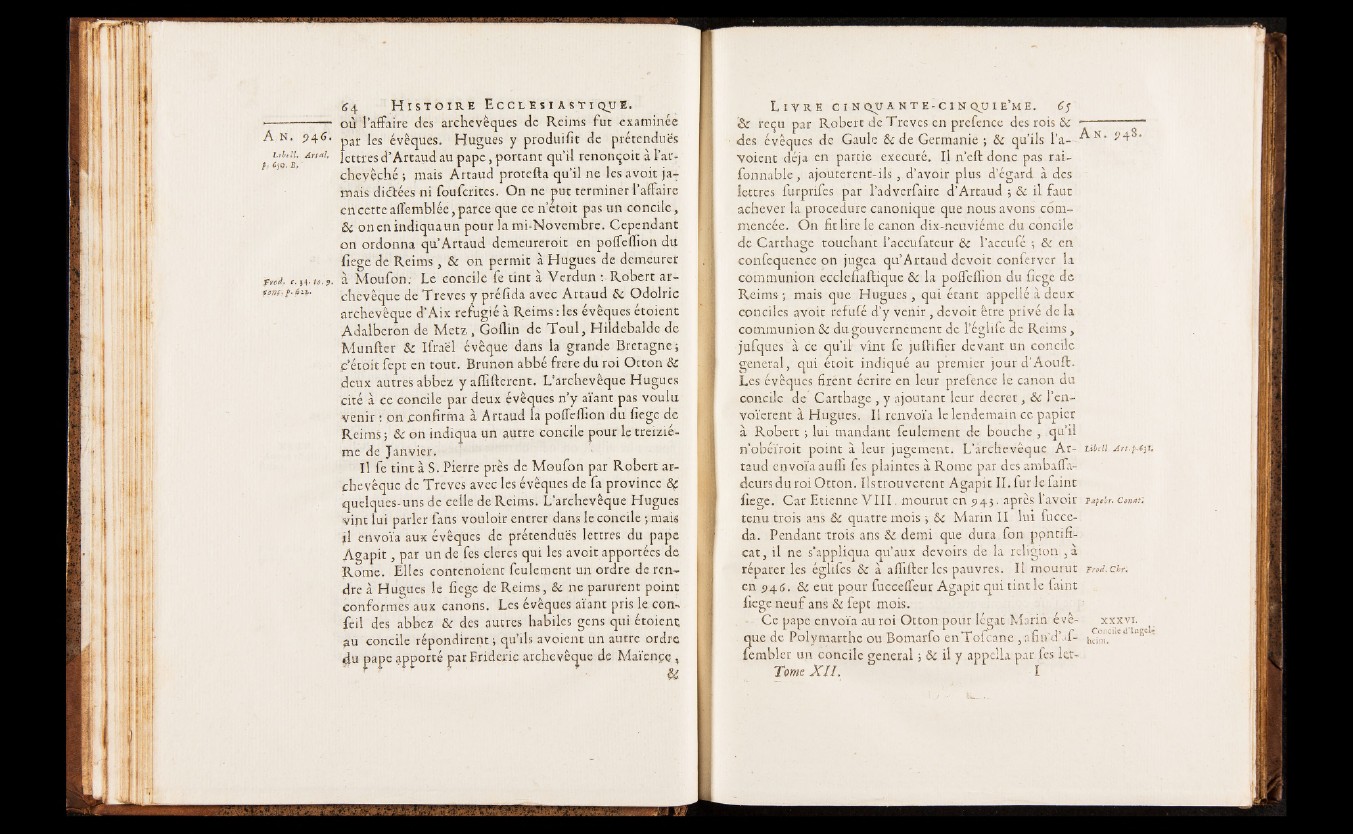 64 HISTOIRE ECCLESIASTIQUE.
où l'affaire des archevêques de Reims fut examinée
AN. 946.
par les évêques. Hugues y produisit de prétenduës
Libell. Artal.
p. 630. B.
lettres d'Artaud au pape, portant qu'il renonçoit à l'ar-
chevêché ; mais Artaud protesta qu'il ne les avoit ja-
mais dictées ni souscrites. On ne put terminer l'affaire
en cette assemblée, parce que ce n'étoit pas un concile,
& on en indiqua un pour la mi-Novembre. Cependant
on ordonna qu'Artaud demeureroit en possession du
siege de Reims, & on permit à Hugues de demeurer
Frod. c. 34. to. 9.
conc. p. 623.
à Mouson. Le concile se tint à Verdun : Robert ar-
chevêque de Treves y présida avec Artaud & Odolric
archevêque d'Aix refugié à Reims : les évêques étoient
Adalberon de Metz, Goslin de Toul, Hildebalde de
Munster & Israël évêque dans la grande Bretagne ;
c'étoit sept en tout. Brunon abbé frere du roi Otton &
deux autres abbez y assisterent. L'archevêque Hugues
cité à ce concile par deux évêques n'y aïant pas voulu
venir : on confirma à Artaud la possession du siege de
Reims ; & on indiqua un autre concile pour le treizié-
me de Janvier.
Il se tint à S. Pierre près de Mouson par Robert ar-
chevêque de Treves avec les évêques de sa province &
quelques-uns de celle de Reims. L'archevêque Hugues
vint lui parler sans vouloir entrer dans le concile ; mais
il envoïa aux évêques de prétenduës lettres du pape
Agapit, par un de ses clercs qui les avoit apportées de
Rome. Elles contenoient seulement un ordre de ren-
dre à Hugues le siege de Reims, & ne parurent point
conformes aux canons. Les évêques aïant pris le con-
seil des abbez & des autres habiles gens qui étoient
au concile répondirent ; qu'ils avoient un autre ordre
du pape apporté par Frideric archevêque de Maïence,
&
LIVRE CINQUANTE-CINQUIE'ME. 65
& reçu par Robert de Treves en presence des rois &
AN. 948.
des évêques de Gaule & de Germanie ; & qu'ils l'a-
voient déja en partie executé. Il n'est donc pas rai-
sonnable, ajouterent-ils, d'avoir plus d'égard à des
lettres surprises par l'adversaire d'Artaud ; & il faut
achever la procedure canonique que nous avons com-
mencée. On fit lire le canon dix-neuviéme du concile
de Carthage touchant l'accusateur & l'accusé ; & en
consequence on jugea qu'Artaud devoit conserver la
communion ecclesiastique & la possession du siege de
Reims ; mais que Hugues, qui étant appellé à deux
conciles avoit refusé d'y venir, devoit être privé de la
communion & du gouvernement de l'église de Reims,
jusques à ce qu'il vint se justifier devant un concile
general, qui étoit indiqué au premier jour d'Aoust.
Les évêques firent écrire en leur presence le canon du
concile de Carthage, y ajoutant leur decret, & l'en-
voïerent à Hugues. Il renvoïa le lendemain ce papier
à Robert ; lui mandant seulement de bouche, qu'il
n'obéïroit point à leur jugement. L'archevêque Ar-
Libell. Art. p. 631.
taud envoïa aussi ses plaintes à Rome par des ambassa-
deurs du roi Otton. Ils trouverent Agapit II. sur le saint
siege. Car Etienne VIII. mourut en 943. après l'avoir
Papebr. Conat.
tenu trois ans & quatre mois ; & Marin II lui succe-
da. Pendant trois ans & demi que dura son pontifi-
cat, il ne s'appliqua qu'aux devoirs de la religion, à
réparer les églises & à assister les pauvres. Il mourut
Frod. Chr.
en 946. & eut pour successeur Agapit qui tint le saint
siege neuf ans & sept mois.
Ce pape envoïa au roi Otton pour légat Marin évê-
XXXVI.
Concile d'Ingel-
heim.
que de Polymarthe ou Bomarso en Toscane, afin d'as-
sembler un concile general ; & il y appella par ses let-
Tome XII. I